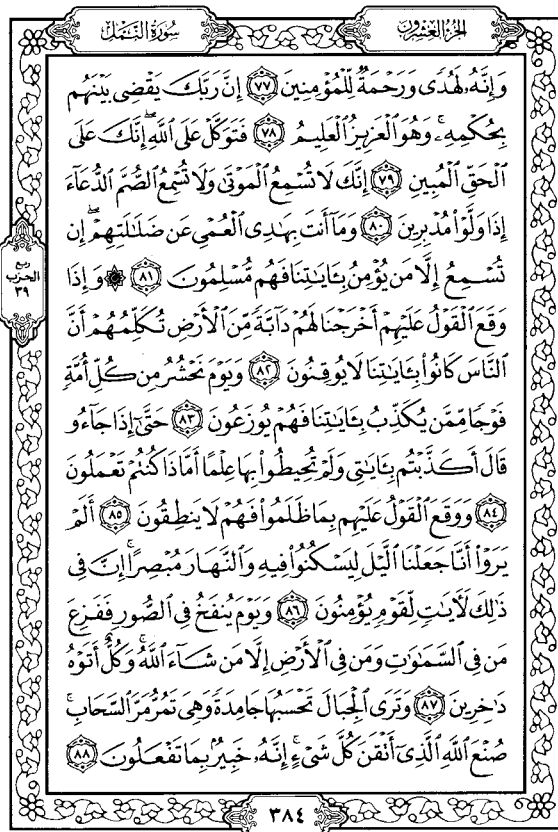 سُورَةُ النَّمْلِ
الجُزْءُ العِشْرُونَ
وَإِنَّهُۥ لَهُدًى وَرَحْمَةٌ لِّلْمُؤْمِنِينَ ٧٧ إِنَّ رَبَّكَ يَقْضِى بَيْنَهُم
بِحُكْمِهِۦۚ وَهُوَ ٱلْعَزِيزُ ٱلْعَلِيمُ ٧٨ فَتَوَكَّلْ عَلَى ٱللَّهِۖ إِنَّكَ عَلَى
ٱلْحَقِّ ٱلْمُبِينِ ٧٩ إِنَّكَ لَا تُسْمِعُ ٱلْمَوْتَىٰ وَلَا تُسْمِعُ ٱلصُّمَّ ٱلدُّعَآءَ
إِذَا وَلَّوْا۟ مُدْبِرِينَ ٨٠ وَمَآ أَنتَ بِهَٰدِى ٱلْعُمْىِ عَن ضَلَٰلَتِهِمْۖ إِن
تُسْمِعُ إِلَّا مَن يُؤْمِنُ بِـَٔايَٰتِنَا فَهُم مُّسْلِمُونَ ٨١ ۞ وَإِذَا
وَقَعَ ٱلْقَوْلُ عَلَيْهِمْ أَخْرَجْنَا لَهُمْ دَآبَّةً مِّنَ ٱلْأَرْضِ تُكَلِّمُهُمْ أَنَّ
ٱلنَّاسَ كَانُوا۟ بِـَٔايَٰتِنَا لَا يُوقِنُونَ ٨٢ وَيَوْمَ نَحْشُرُ مِن كُلِّ أُمَّةٍ
فَوْجًا مِّمَّن يُكَذِّبُ بِـَٔايَٰتِنَا فَهُمْ يُوزَعُونَ ٨٣ حَتَّىٰٓ إِذَا جَآءُو
قَالَ أَكَذَّبْتُم بِـَٔايَٰتِى وَلَمْ تُحِيطُوا۟ بِهَا عِلْمًا أَمَّاذَا كُنتُمْ تَعْمَلُونَ
٨٤ وَوَقَعَ ٱلْقَوْلُ عَلَيْهِم بِمَا ظَلَمُوا۟ فَهُمْ لَا يَنطِقُونَ ٨٥ أَلَمْ
يَرَوْا۟ أَنَّا جَعَلْنَا ٱلَّيْلَ لِيَسْكُنُوا۟ فِيهِ وَٱلنَّهَارَ مُبْصِرًاۚ إِنَّ فِى
ذَٰلِكَ لَـَٔايَٰتٍ لِّقَوْمٍ يُؤْمِنُونَ ٨٦ وَيَوْمَ يُنفَخُ فِى ٱلصُّورِ فَفَزِعَ
مَن فِى ٱلسَّمَٰوَٰتِ وَمَن فِى ٱلْأَرْضِ إِلَّا مَن شَآءَ ٱللَّهُۚ وَكُلٌّ أَتَوْهُ
دَٰخِرِينَ ٨٧ وَتَرَى ٱلْجِبَالَ تَحْسَبُهَا جَامِدَةً وَهِىَ تَمُرُّ مَرَّ ٱلسَّحَابِۚ
صُنْعَ ٱللَّهِ ٱلَّذِىٓ أَتْقَنَ كُلَّ شَىْءٍۚ إِنَّهُۥ خَبِيرٌۢ بِمَا تَفْعَلُونَ ٨٨
ربع
الحزب
٣٩
٣٨٤